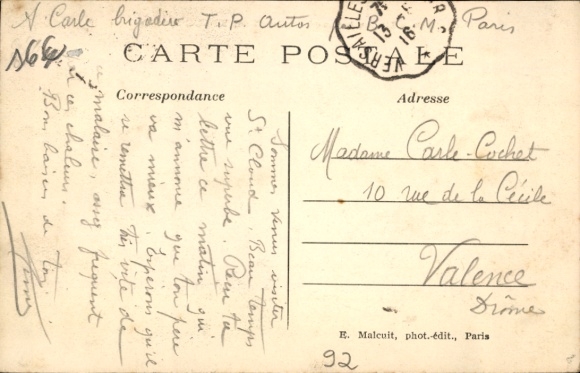 A Carle brigadier T. P. Autos B. C. M. Paris
CARTE POSTALE
Correspondance
Adresse
Sommes venus visiter
St Cloud. Beau temps
vue superbe. Reçu ta
lettre ce matin qui
m'annonce que ton père
va mieux. Espérons qu'il
se remettra très vite de
malaise, assez fréquent
ces chaleurs.
Bons baisers de ton
Madame Carle-Cochet
10 rue de la Cécile
Valence
Drôme
E. Malcuit, phot.-édit., Paris
92